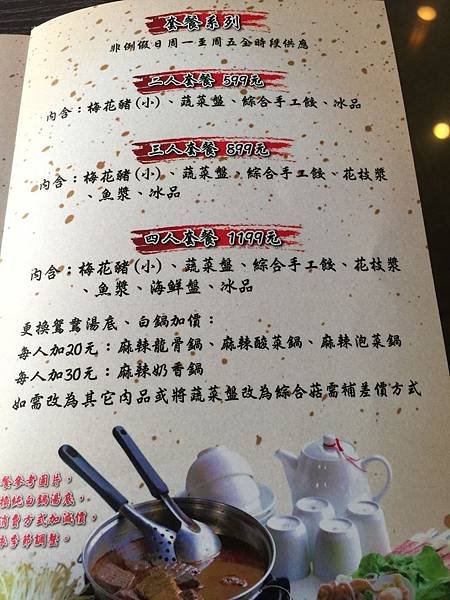 套餐系列
非例假日周一至周五全時段供應
二人套餐 599元
內含：梅花豬(小)、蔬菜盤、綜合手工餃、冰品
三人套餐 899元
內含：梅花豬(小)、蔬菜盤、綜合手工餃、花枝漿
、魚漿、冰品
四人套餐 1199元
內含：梅花豬(小)、蔬菜盤、綜合手工餃、花枝漿
、魚漿、海鮮盤、冰品
更換鴛鴦湯底、白鍋加價：
每人加20元：麻辣龍骨鍋、麻辣酸菜鍋、麻辣泡菜鍋
每人加30元：麻辣奶香鍋
如需改為其它肉品或將蔬菜盤改為綜合菇需補差價方式
餐參考圖片，
換純白鍋湯底，
消費方式加減價，
季節調整。